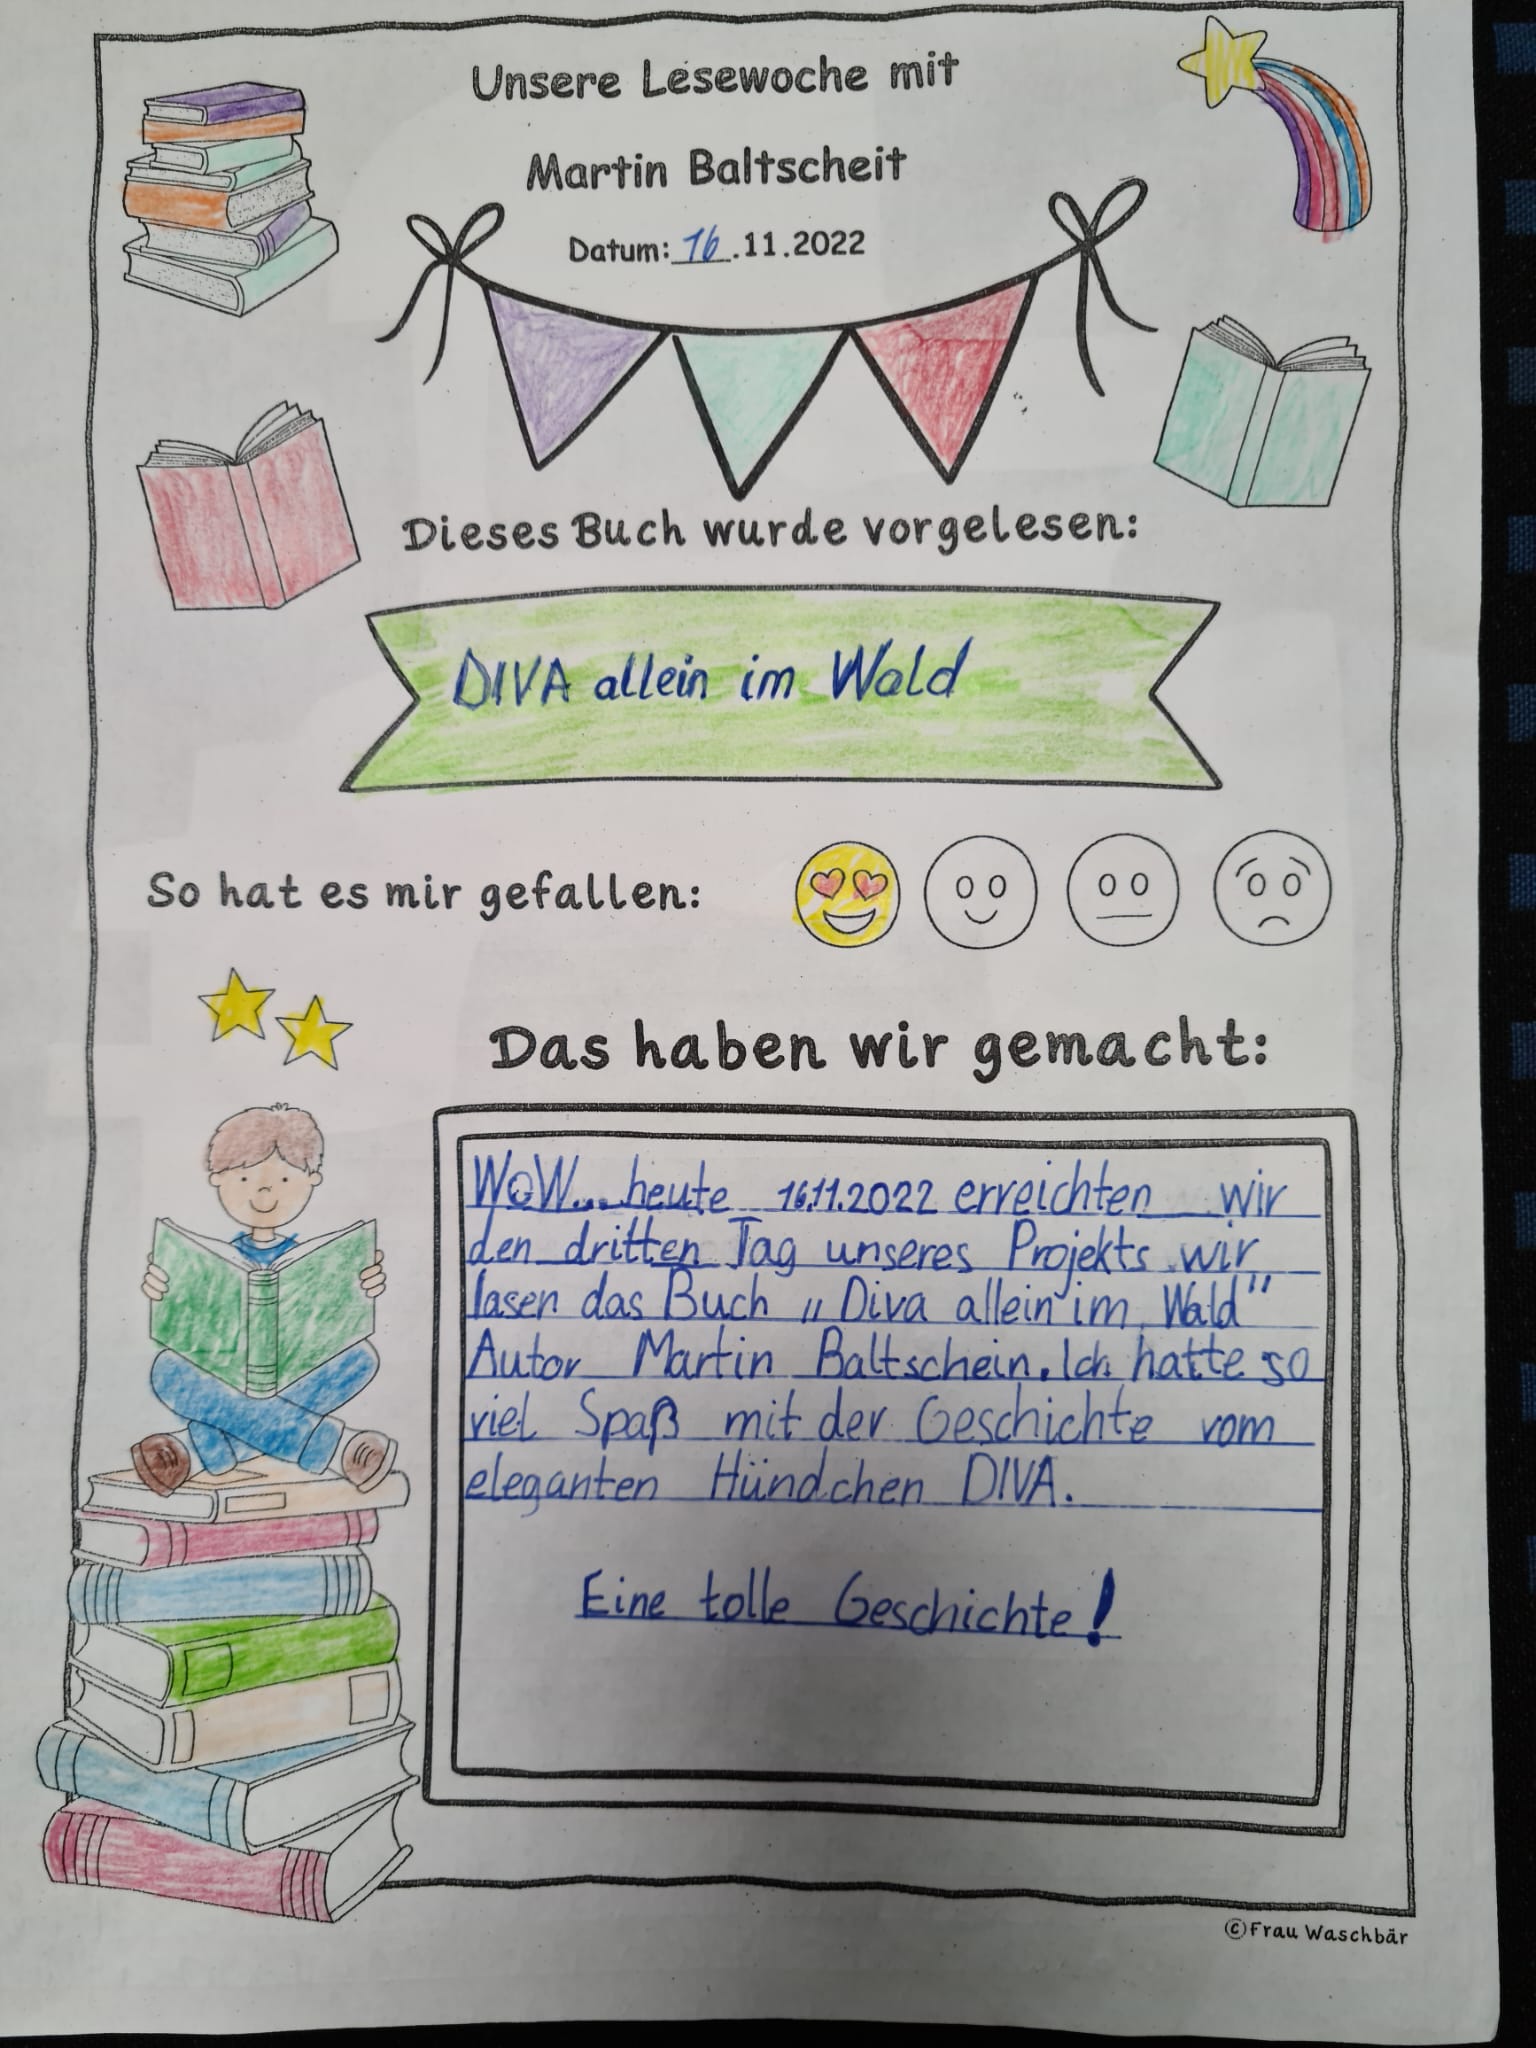 Unsere Lesewoche mit
Martin Baltscheit
Datum: 16.11.2022
Dieses Buch wurde vorgelesen:
DIVA allein im Wald
So hat es mir gefallen:
Das haben wir gemacht:
WoW... heute 16.11.2022 erreichten wir
den dritten Tag unseres Projekts wir
lasen das Buch „Diva allein im Wald"
Autor Martin Baltschein. Ich hatte so
viel Spaß mit der Geschichte vom
eleganten Hündchen DIVA.
Eine tolle Geschichte!
©Frau Waschbär